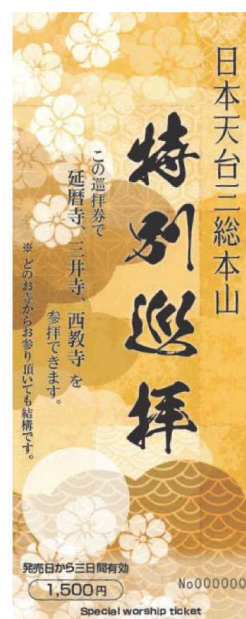 日本天台三総本山
特別巡拝
この巡拝券で
延暦寺、三井寺、西教寺を
参拝できます。
※どのお寺からお参り頂いても結構です。
発売日から三日間有効
1,500円
No000000
Special worship ticket